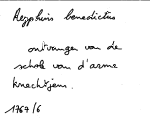 Aegphins benedictus
ontvanger van de
schole van d'arme
knechtjens.
1767/6